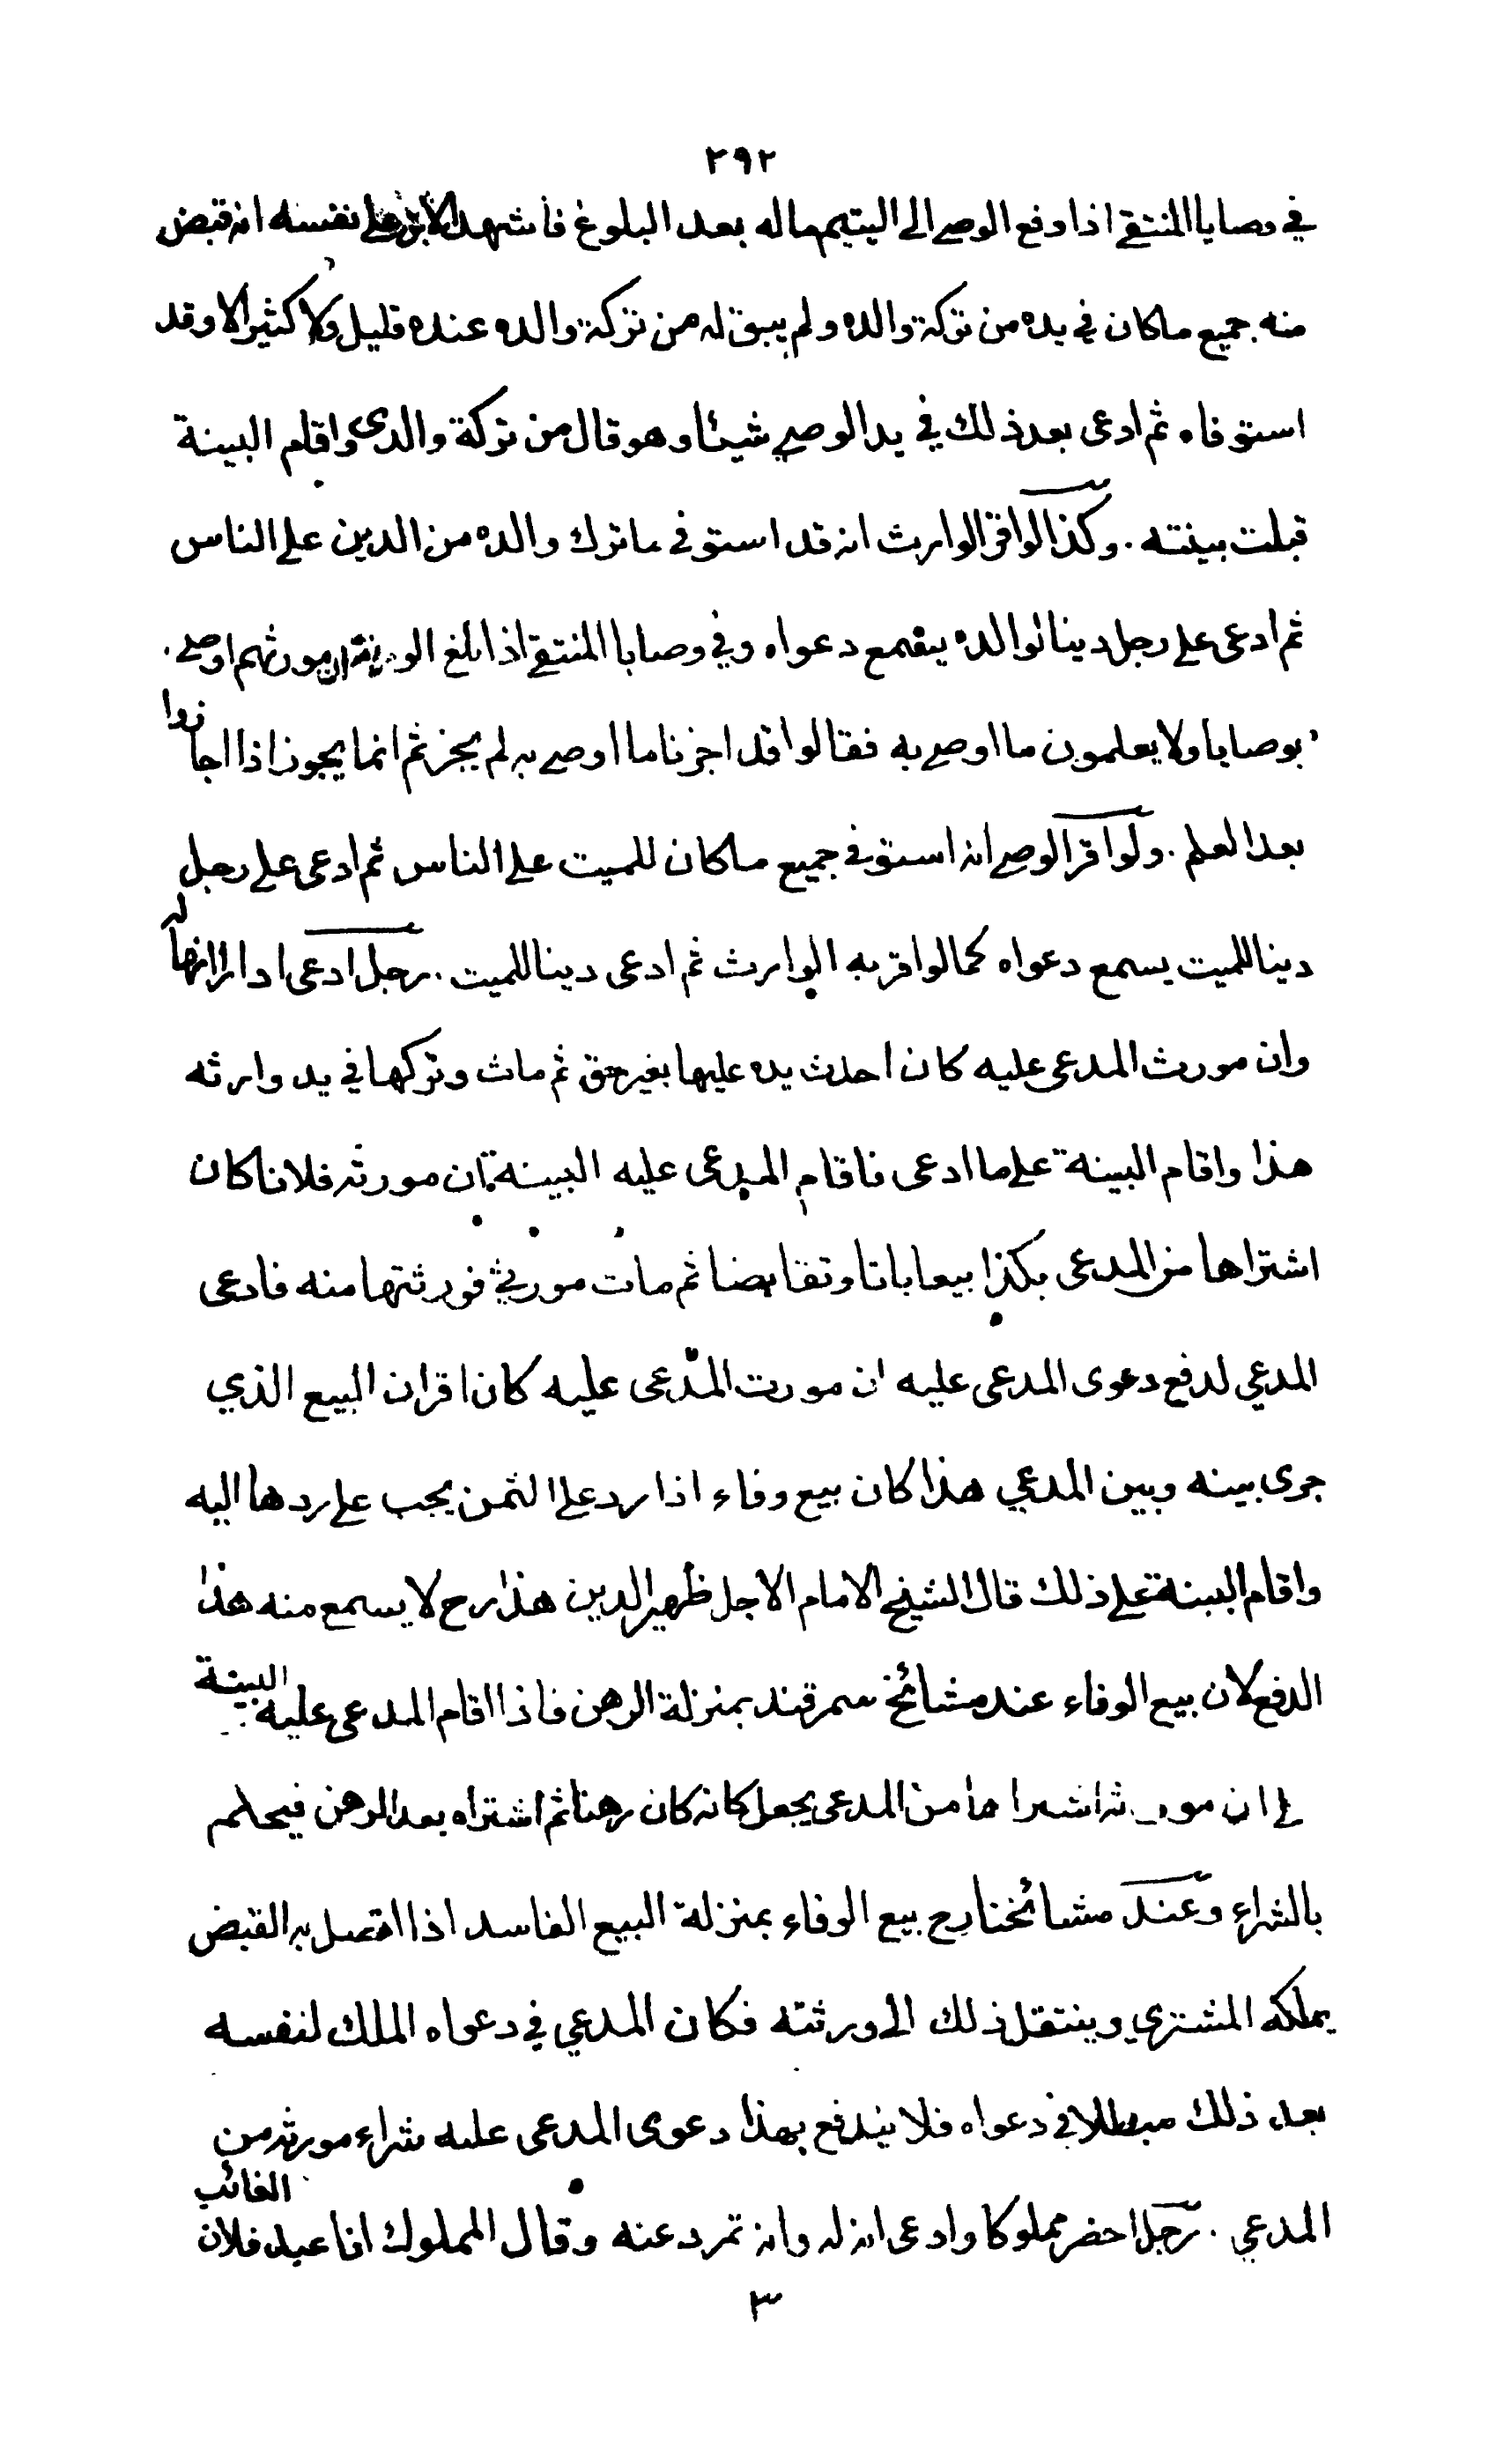 ٢٩٢
في وصايا المنتقى اذا دفع الوصي الى اليتيم ماله بعد البلوغ فاشهد الابن على نفسه انه قبض
منه جميع ما كان في يده من تركة والده ولم يبق له من تركة والده عنده قليل ولا كثير الا وقد
استوفاه ثم ادعى بعد ذلك في يد الوصي شيئا وهو قال من تركة والدى واقام البينة
قبلت بينته . وكذا لو اقر الوارث انه قد استوفى ما ترك والده من الدين على الناس
ثم ادعى على رجل دينا لوالده يسمع دعواه وفي وصايا المنتقى اذا بلغ الورثة ان مورثهم اوصى
بوصايا ولا يعلمون ما اوصى به فقالوا قد اجزنا ما اوصى به لم يجز ثم انما يجوز اذا اجازوا
بعد العلم . ولو اقر الوصي انه استوفى جميع ما كان للميت على الناس ثم ادعى على رجل
دينا للميت يسمع دعواه كما لو اقر به الوارث ثم ادعى دينا للميت . رجل ادعى دارا انها له
وان مورث المدعى عليه كان احدث يده عليها بغير حق ثم مات وتركها في يد وارثه
هذا واقام البينة على ما ادعى فاقام المدعى عليه البينة ان مورثه فلانا كان
اشتراها من المدعى بكذا بيعا باتا وتقابضا ثم مات مورثي فورثتها منه فادعى
المدعي لدفع دعوى المدعى عليه ان مورث المدعى عليه كان اقر ان البيع الذي
جرى بينه وبين المدعي هذا كان بيع وفاء اذا رد علي الثمن يجب علي ردها اليه
واقام البينة على ذلك قال الشيخ الامام الاجل ظهير الدين هذا رح لا يسمع منه هذا
الدفع لان بيع الوفاء عند مشائخ سمرقند بمنزلة الرهن فاذا اقام المدعى عليه البينة
ان مورثه اشتراها من المدعى يجعل كانه كان رهنا ثم اشتراه بعد الرهن فيحكم
بالشراء وعند مشائخنا رح بيع الوفاء بمنزلة البيع الفاسد اذا اتصل به القبض
يملكه المشتري وينتقل ذلك الى ورثته فكان المدعي في دعواه الملك لنفسه
بعد ذلك مبطلا في دعواه فلا يندفع بهذا دعوى المدعى عليه شراء مورثه من
المدعي . رجل احضر مملوكا وادعى انه له وانه تمرد عنه وقال المملوك انا عبد فلان الغائب
٣